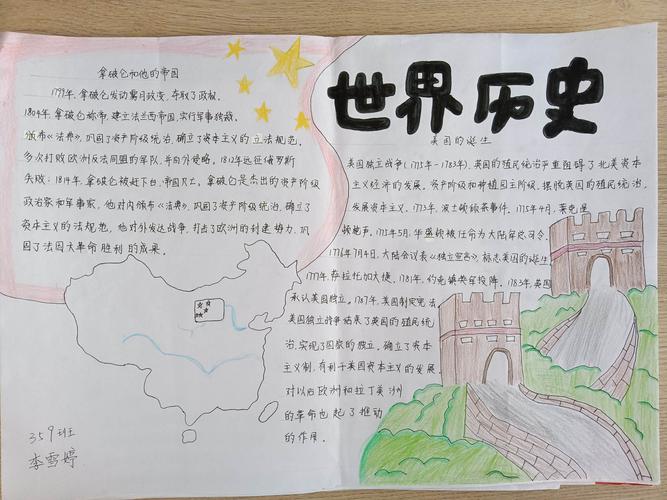 世界历史
拿破仑和他的帝国
1799年,拿破仑发动雾月政变,夺取了政权。
1804年,拿破仑称帝,建立法兰西帝国,实行军事独裁。
颁布《法典》,巩固了资产阶级统治,确立了资本主义的立法规范。
多次打败欧洲反法同盟的军队,并向外侵略,1812年远征俄罗斯
失败;1814年,拿破仑被赶下台,帝国灭亡,拿破仑是杰出的资产阶级
政治家和军事家,他对内颁布《法典》,巩固了资产阶级统治,确立了
资本主义的法规范,他对外发达战争,打击了欧洲的封建势力,巩
固了法国大革命胜利的成果。
美国的诞生
美国独立战争(1775年-1783年),英国的殖民统治严重阻碍了北美资本
主义经济的发展,资产阶级和种植园主阶级,摆脱英国的殖民统治,
发展资本主义,1773年,波士顿倾茶事件,1775年4月,莱克星
顿枪声。1775年5月,华盛顿被任命为大陆军总司令,
1776年7月4日,大陆会议表《独立宣言》,标志美国的诞生
1777年,萨拉托加大捷,1781年,约克镇英军投降,1783年,英国
承认美国独立。1787年,美国制定宪法
美国独立战争结束了英国的殖民统
治,实现了国家的独立,确立了资本
主义制,有利于美国资本主义的发展,
对以后欧洲和拉丁美洲
的革命也起了推动
的作用。
359班
李雪婷